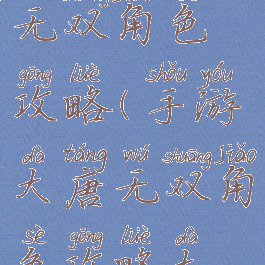 无双角色
gōng lüè shǒu yóu
攻略(手游
dà táng wú shuāng jiǎo
大唐无双角
sè gōng lüè dà